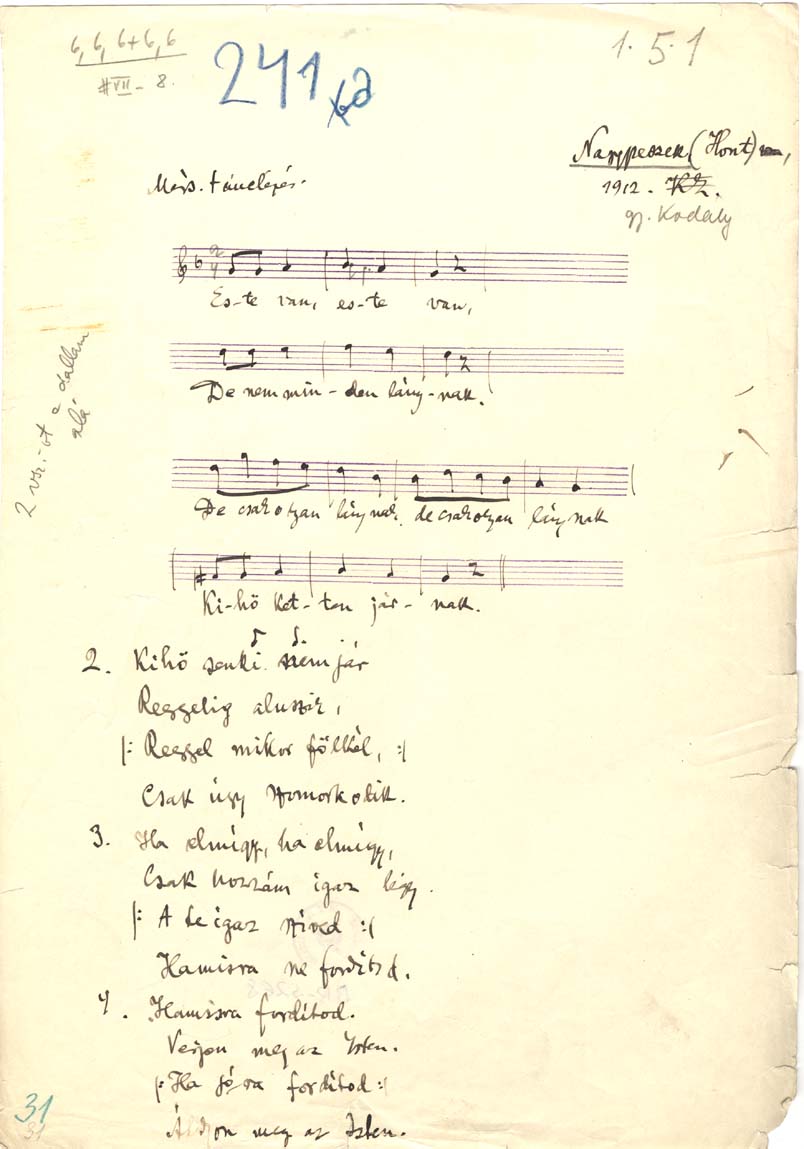 6, 6, 6+6, 6
#VII - 8.
241
1.5.1
Nagypeszek (Hont)
1912. KZ.
gy. Kodály
Mérs. tánclépés.
2/4
Es-te van, es-te van,
De nem min-den lány-nak.
De csak olyan lánynak, de csak olyan lánynak
Ki-hö ket-ten jár-nak.
2 vsz.-ot a dallam
alá
2. Kihö senki sem jár
Reggelig aluszik,
|: Reggel mikor fölkél, :|
Csak úgy
3. Ha elmígy, ha elmígy,
Csak hozzám igaz légy.
|: A te igaz szíved :|
Hamisra ne fordítsd.
4. Hamisra fordítod.
Verjon meg az Isten.
|: Ha jóra fordítod :|
Áldjon meg az Isten.
31
31